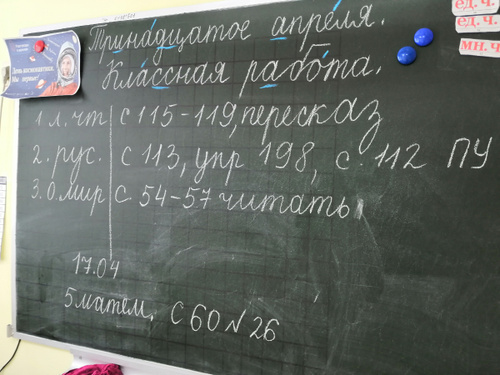 Тринадцатое апреля.
Классная работа.
1. л. чт с 115-119, пересказ
2. рус. с 113, упр 198, с. 112 ПУ
3. О. мир с. 54-57 читать
17.04
5 матем. с 60 № 26
ед. ч.
ед. ч.
мн. ч